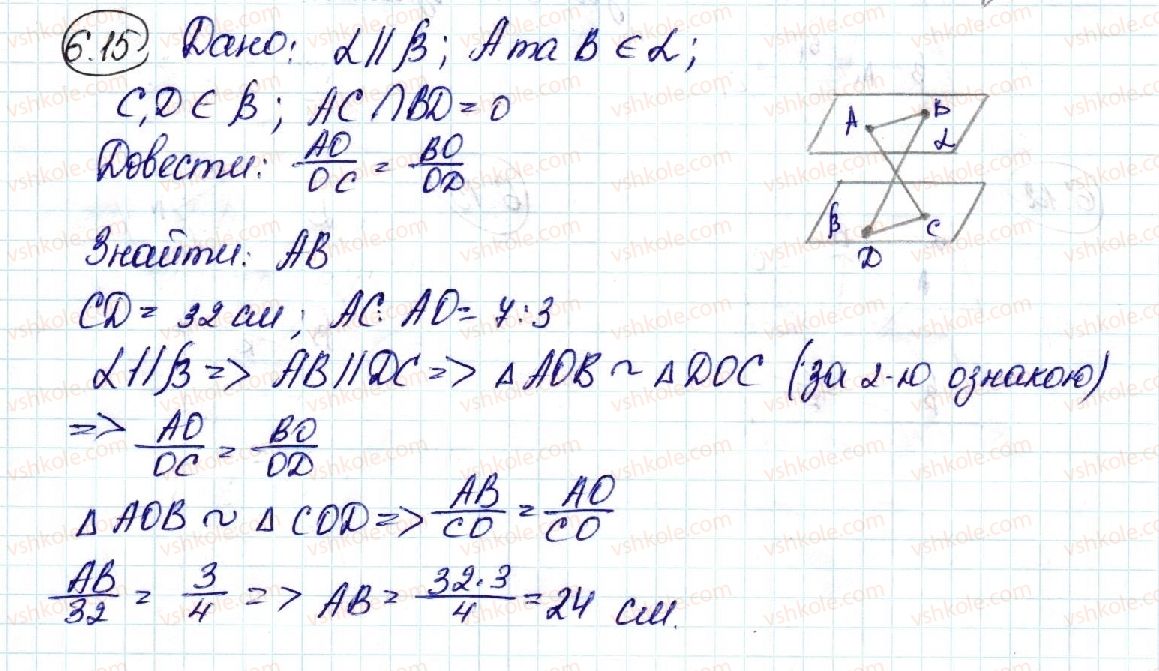 6.15 Дано: α||β; A та B ∈ α;
C, D ∈ β; AC ∩ BD = O
Довести: AO/OC = BO/OD
Знайти: AB
CD = 32 см; AC : AO = 7:3
α||β => AB||DC => △AOB ~ △DOC (за 2-ю ознакою)
=> AO/OC = BO/OD
△AOB ~ △COD => AB/CO = AO/CO
AB/32 = 3/4 => AB = 32·3/4 = 24 см.
A B
α
β C
D
vshkole.com